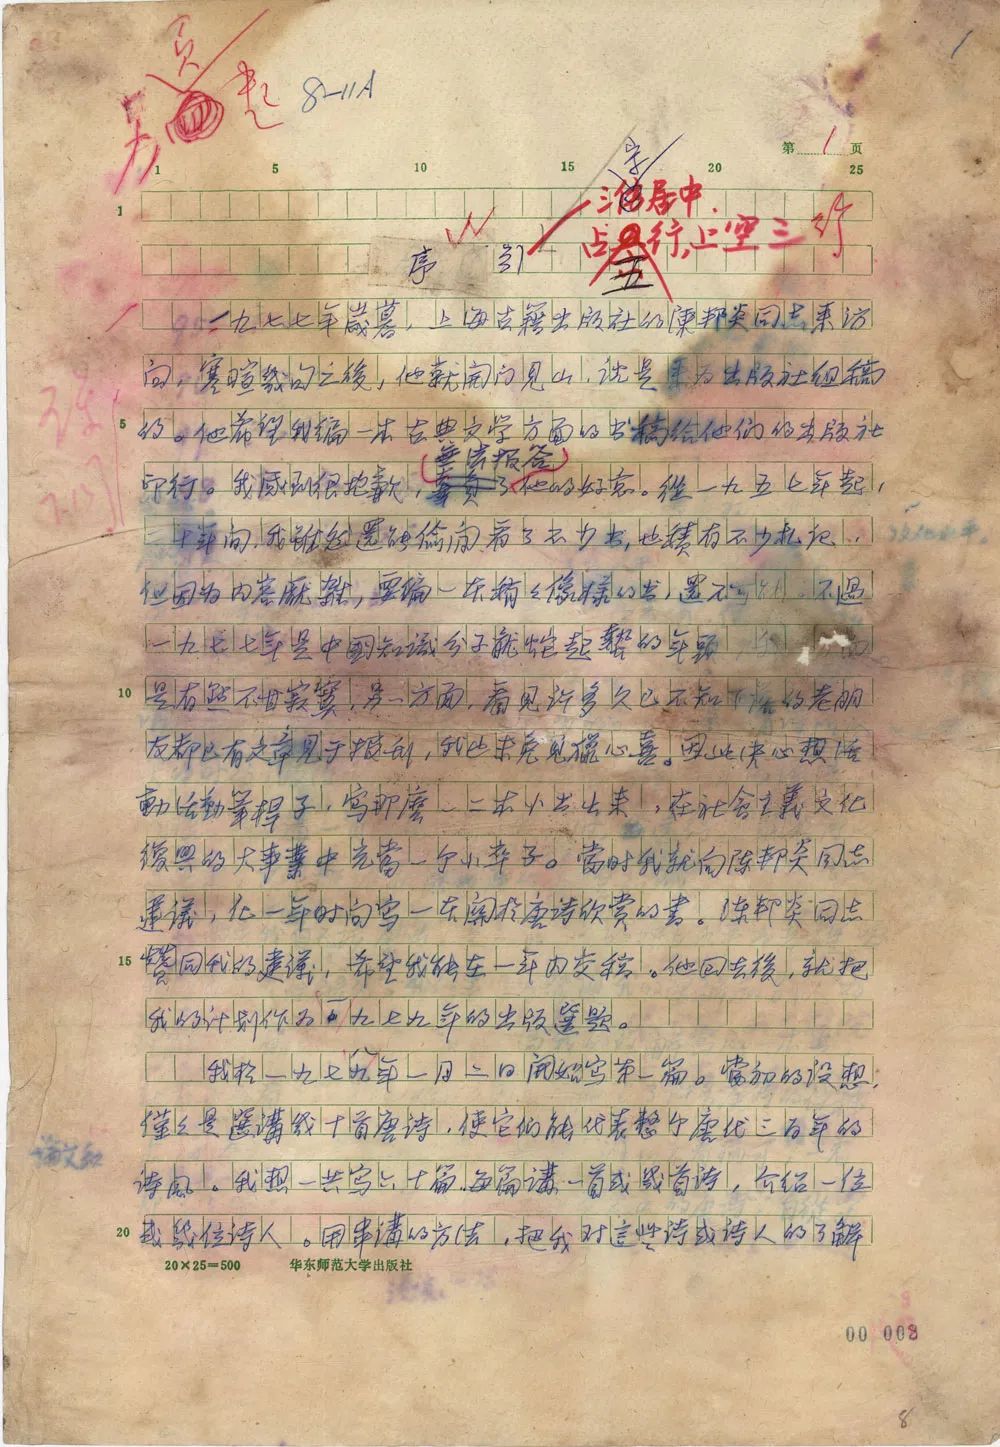 8-11A
1
第 1 页
1 5 10 15 20 25
三仿居中.
占五行,上空三行
1
序 引
一九七七年歲暮,上海古籍出版社的陳邦炎同志来訪
问,寒暄幾句之後,他就開门見山,说是来为出版社组稿
5 的。他希望我编一本古典文学方面的书稿给他们的出版社
無法报答
印行。我感到很抱歉,辜負了他的好意。從一九五七年起,
二十年间,我雖然還能偷闲看了不少书,也積有不少札记,
但因为内容厖雜,要编一本稍々像樣的书,還不可能。不過
一九七七年是中國知識分子龍蛇起蟄的年頭
10 是有點不甘寂寞,另一方面,看見许多久已不知下落的老朋
友都已有文章見于报刊,我也未免見獵心喜。因此决心想活
動活動筆桿子,写那麽一二本小书出来,在社会主義文化
復興的大事業中充當一个小卒子。當时我就向陈邦炎同志
建議,花一年时间写一本關於唐诗欣赏的書。陈邦炎同志
15 贊同我的建議,希望我能在一年内交稿。他回去後,就把
我的计划作为一九七九年的出版選題。
我於一九七八年一月二日開始写第一篇。當初的设想,
僅々是選講幾十首唐诗,使它们能代表整个唐代三百年的
诗风。我想一共写六十篇,每篇講一首或幾首诗,介绍一位
20 或幾位诗人。用串講的方法,把我对這些诗或诗人的了解
20×25=500 华东师范大学出版社
00 008
8